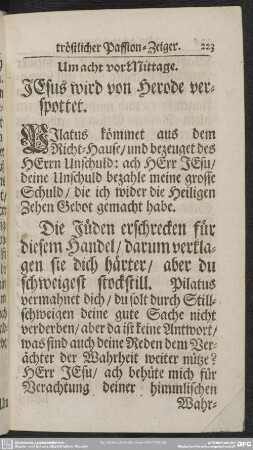 tröstlicher Passion-Zeiger. 223
Um acht vor Mittage.
JEsus wird von Herode ver-
spottet.
PIlatus kömmet aus dem
Richt-Hause/ und bezeuget des
HErrn Unschuld: ach HErr JEsu/
deine Unschuld bezahle meine grosse
Schuld/ die ich wider die Heiligen
Zehen Gebot gemacht habe.
Die Jüden erschrecken für
diesem Handel/ darum verkla-
gen sie dich härter/ aber du
schweigest stockstill. Pilatus
vermahnet dich/ du solt durch Still-
schweigen deine gute Sache nicht
verderben/ aber da ist keine Antwort/
was sind auch deine Reden dem Ver-
ächter der Wahrheit weiter nütze?
HErr JEsu/ ach behüte mich für
Verachtung deiner himmlischen
Wahr-